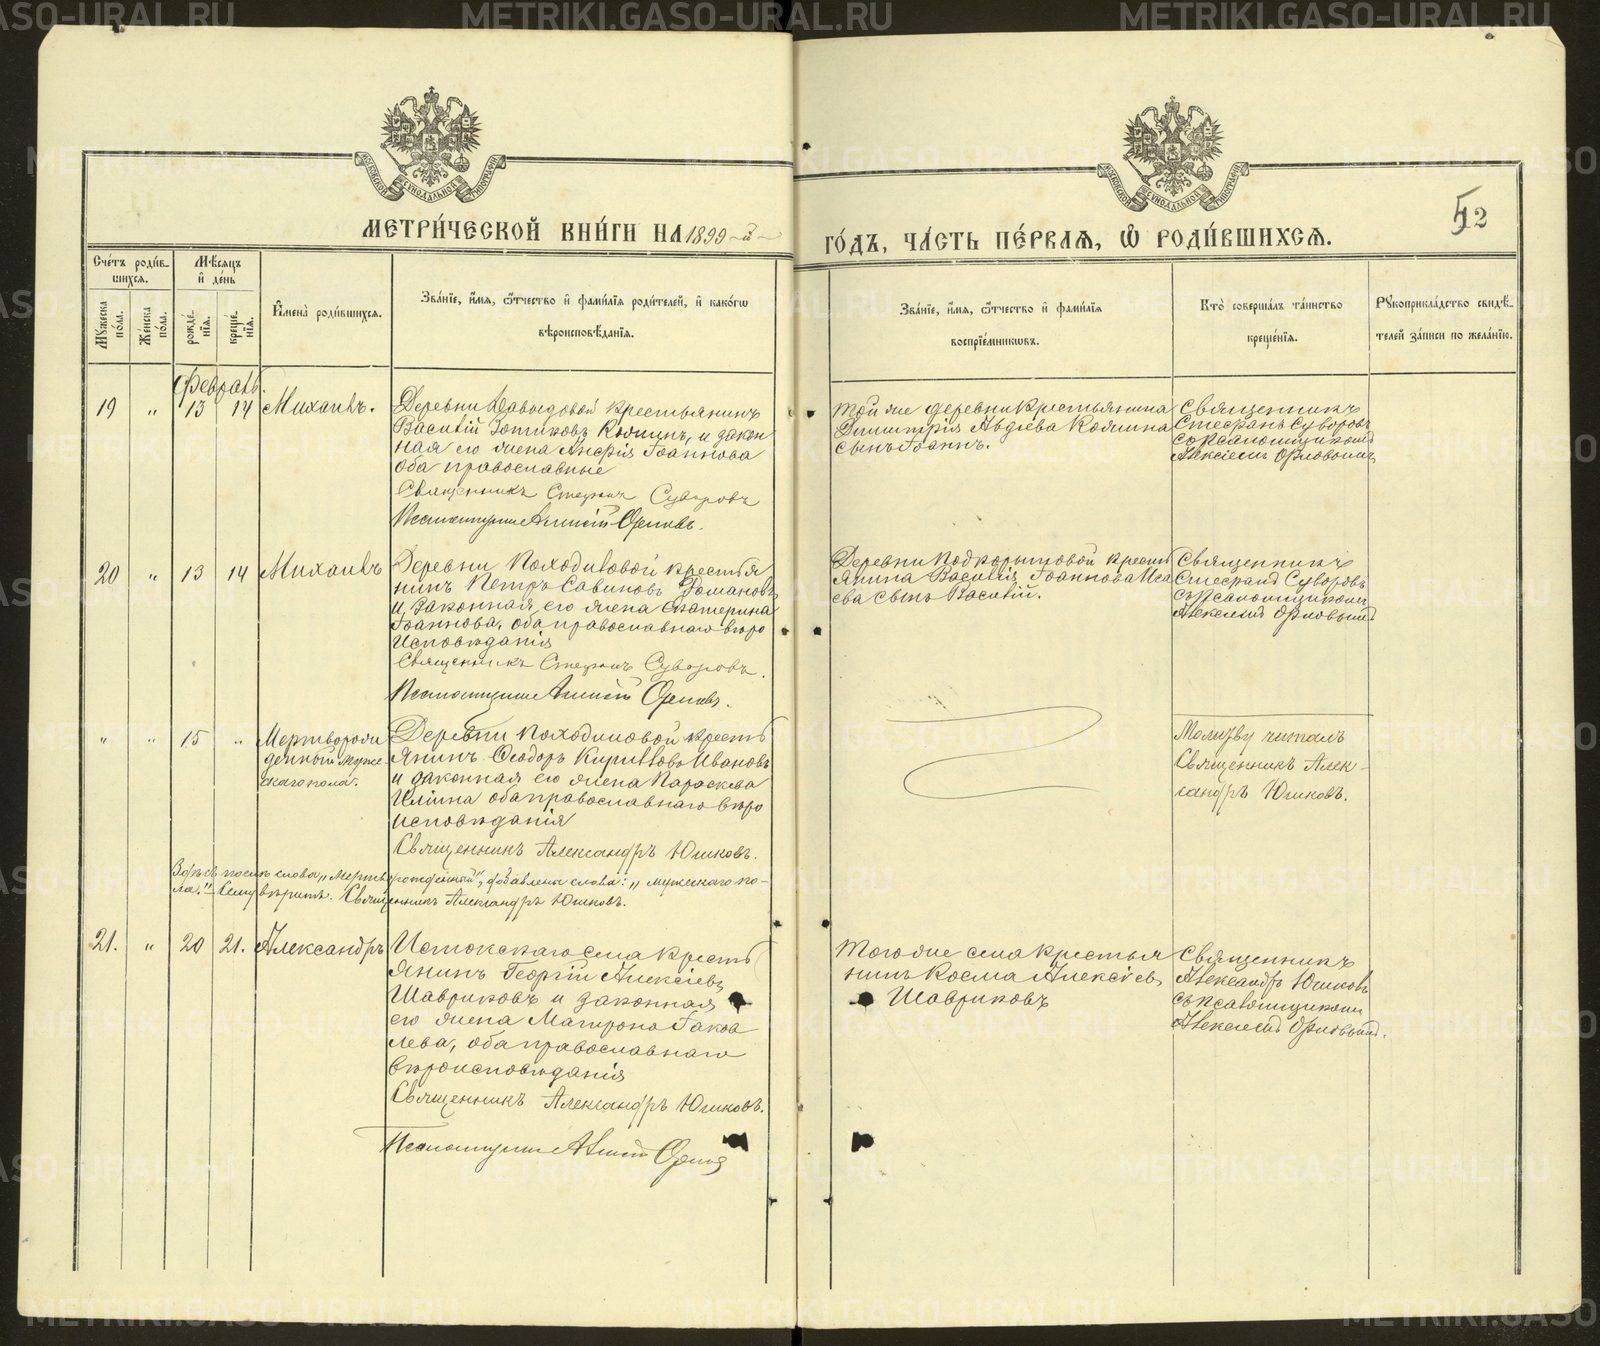 METRIKI.GASO-URAL.RU
МОСКОВСКОЙ СѴНОДАЛЬНОЙ ТИПОГРАФІИ
МОСКОВСКОЙ СѴНОДАЛЬНОЙ ТИПОГРАФІИ
МЕТРИ́ЧЕСКОЙ КНИ́ГИ НА 1899-й
ГО́ДЪ, ЧА́СТЬ ПЕ́РВАЯ, Ѡ РОДИ́ВШИХСЯ.
52
Сче́тъ роди́в-
шихся.
Мѣ́сяцъ
и де́нь
Мꙋжеска по́ла.
Же́нска по́ла.
рожде́-
нїя.
креще́-
нїя.
И҆мена̀ роди́вшихся.
Зва́нїе, и҆́мя, ѻ҆́тчество и҆ фами́лїя роди́телей, и҆ како́гѡ
вѣроисповѣ́данїя.
Зва́нїе, и҆́мя, ѻ҆́тчество и҆ фами́лїя
воспрїе́мникѡвъ.
Кто̀ соверша́лъ та́инство
креще́нїя.
Рꙋкоприкла́дство свидѣ́-
телей за́писи по жела́нїю.
Февраль.
19 " 13 14 Михаилъ.
Деревни Давыдовой крестьянинъ
Василій Зотиковъ Коминъ, и закон
ная его жена Анфія Іоаннова
оба православные
Священникъ Стефанъ Суворовъ
Псаломщикъ Алексій Орловъ.
Той же деревни крестьянина
Димитрія Авдіева Комина
сынъ Іоаннъ.
Священникъ
Стефанъ Суворовъ
съ псаломщикомъ
Алексіемъ Орловымъ
20 " 13 14 Михаилъ
Деревни Походиловой крестья
нинъ Петръ Савиновъ Романовъ
и законная его жена Екатерина
Іоаннова, оба православнаго вѣро
исповѣданія
Священникъ Стефанъ Суворовъ.
Псаломщикъ Алексій Орловъ.
Деревни Подкорытовой кресть
янина Василія Іоаннова Иса
ева сынъ Василій.
Священникъ
Стефанъ Суворовъ
съ псаломщикомъ
Алексіемъ Орловымъ
" " 15 " Мертворож
денный муже
скаго пола.
Деревни Походиловой кресть
янинъ Ѳеодоръ Кирилловъ Ивановъ
и законная его жена Параскева
Иліина оба православнаго вѣро
исповѣданія
Священникъ Александръ Юшковъ.
Молитву читалъ
Священникъ Алек-
сандръ Юшковъ.
Здѣсь послѣ слова „Мертворожденный", добавлены слова: „мужескаго по-
ла." - Сему вѣрить. Священникъ Александръ Юшковъ.
21. " 20 21. Александръ
Истокскаго села кресть
янинъ Георгій Алексіевъ
Шавриковъ и законная
его жена Матрона Іаков
лева, оба православнаго
вѣроисповѣданія
Священникъ Александръ Юшковъ.
Псаломщикъ Алексій Орловъ
Того же села крестья
нинъ Косма Алексіевъ
Шавриковъ
Священникъ
Александръ Юшковъ
съ псаломщикомъ
Алексіемъ Орловымъ.